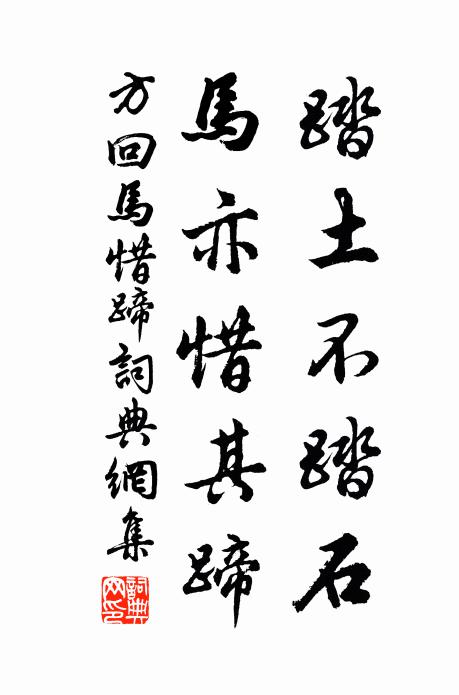 踏土不踏石
馬亦惜其蹄
方回馬惜蹄詞典網集
詞典网印